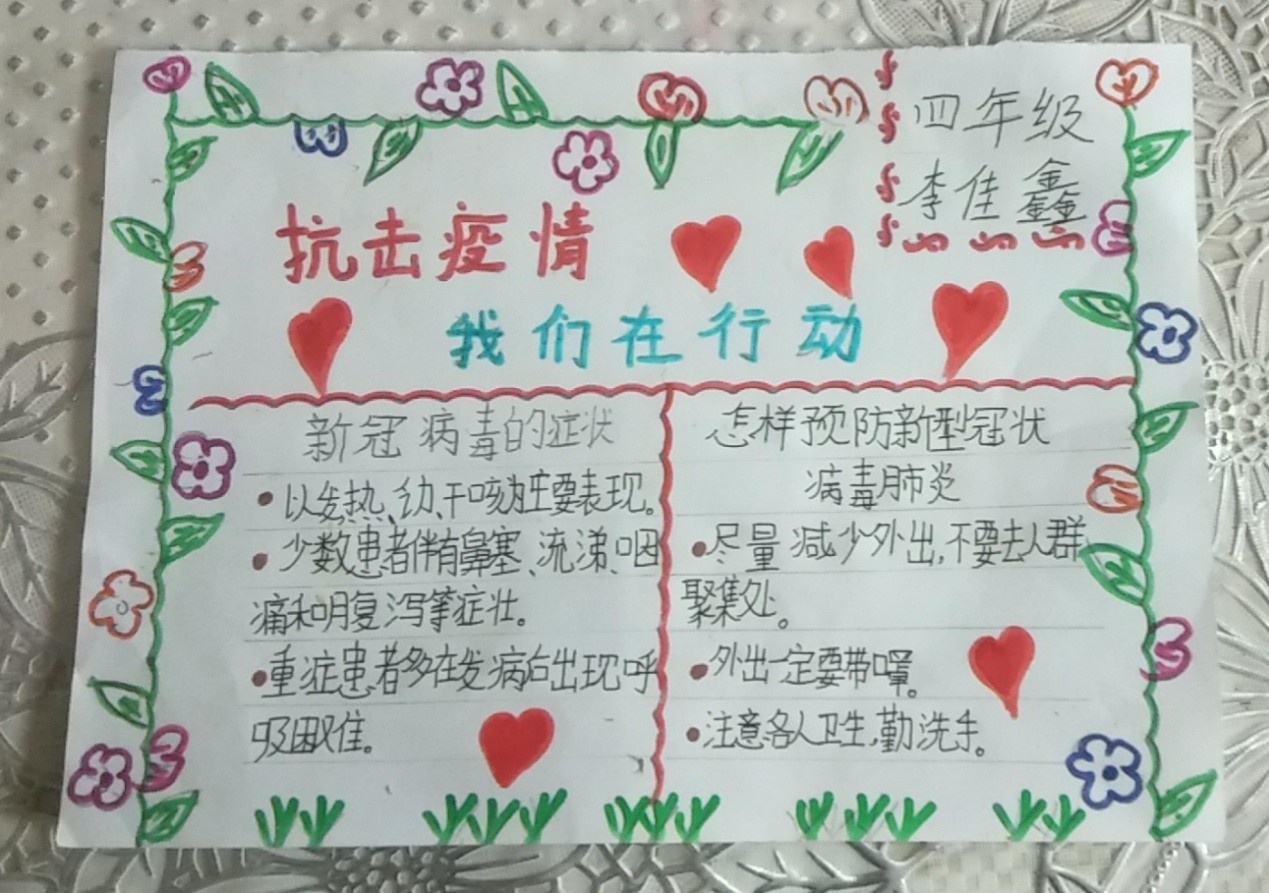 四年级
李佳鑫
抗击疫情
我们在行动
新冠病毒的症状
•以发热、幼、干咳为主要表现。
•少数患者伴有鼻塞、流涕、咽
痛和明复泻等症壮。
•重症患者多在发病后出现呼
吸困难。
怎样预防新型冠状
病毒肺炎
•尽量减少外出,不要去人群
聚集处。
•外出一定要带罩。
•注意各人卫生,勤洗手。